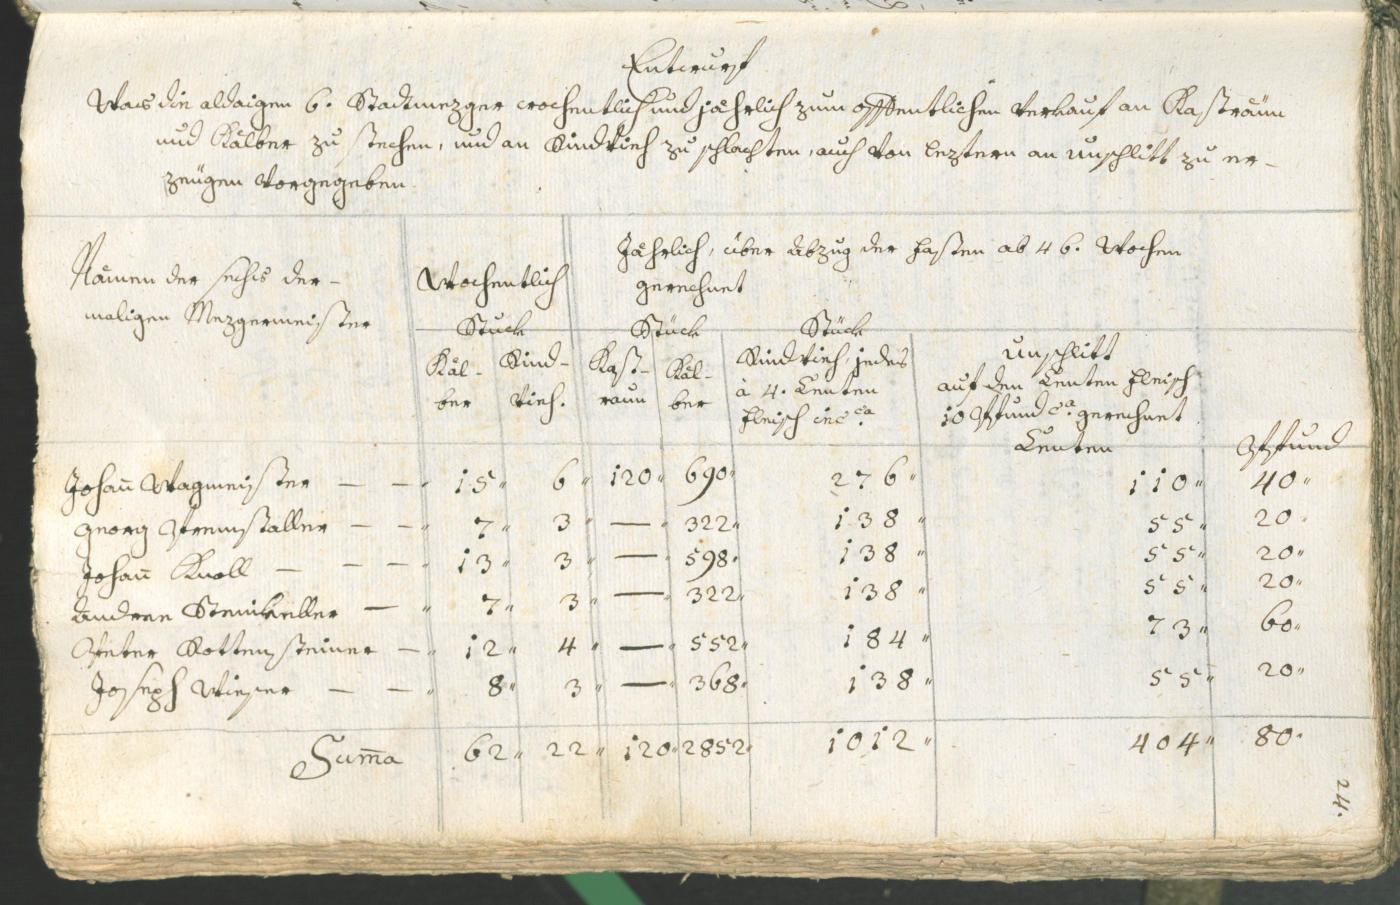 Entwurf
Was die aldaigen 6. Stadtmezger wochentlich und jährlich zum offentlichen Verkauf an Kasträun
und Kälber zu stechen, und an Rindvieh zu schlachten, auch von leztern an Unschlitt zu er-
zeugen vorgegeben.
Namen der sechs der-
maligen Mezgermeister
Wochentlich
Jährlich, über Abzug der Fasten ab 46. Wochen
gerechnet
Stuck Stück Stück
Käl- Rind- Kast- Käl- Rindvieh, jedes Unschlitt
ber vieh. raun ber à 4. Centen auf den Centen Fleisch
Fleisch 10 Pfund ca. gerechnet
Centen Pfund
Johann Wagmeister — — 15 6 120 690 276 110 40
Georg Premstaller — — 7 3 — 322 138 55 20
Johann Knoll — — — 13 3 — 598 138 55 20
Andree Steinkeller — 7 3 — 322 138 55 20
Peter Rottensteiner — 12 4 — 552 184 73 60
Joseph Wieser — — 8 3 — 368 138 55 20
Summa 62 22 120 2852 1012 404 80
24.